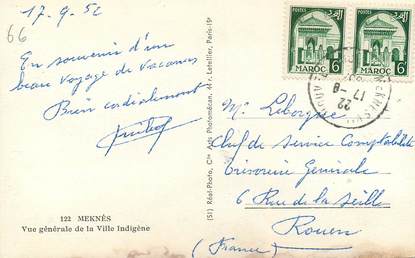 17.9.52
66
En souvenir d'un
beau voyage de vacances
Bien cordialement
122 MEKNÈS
Vue générale de la Ville Indigène
(51) Réal-Photo, Cie Arts Photomécan. 44, r. Letellier, Paris-15e
POSTES
MAROC 6F
POSTES
MAROC 6F
22
17-9
Mr Leborgne
Chef de Service Comptabilité
Trésorerie Générale
6 Rue de la Seille
Rouen
(France)